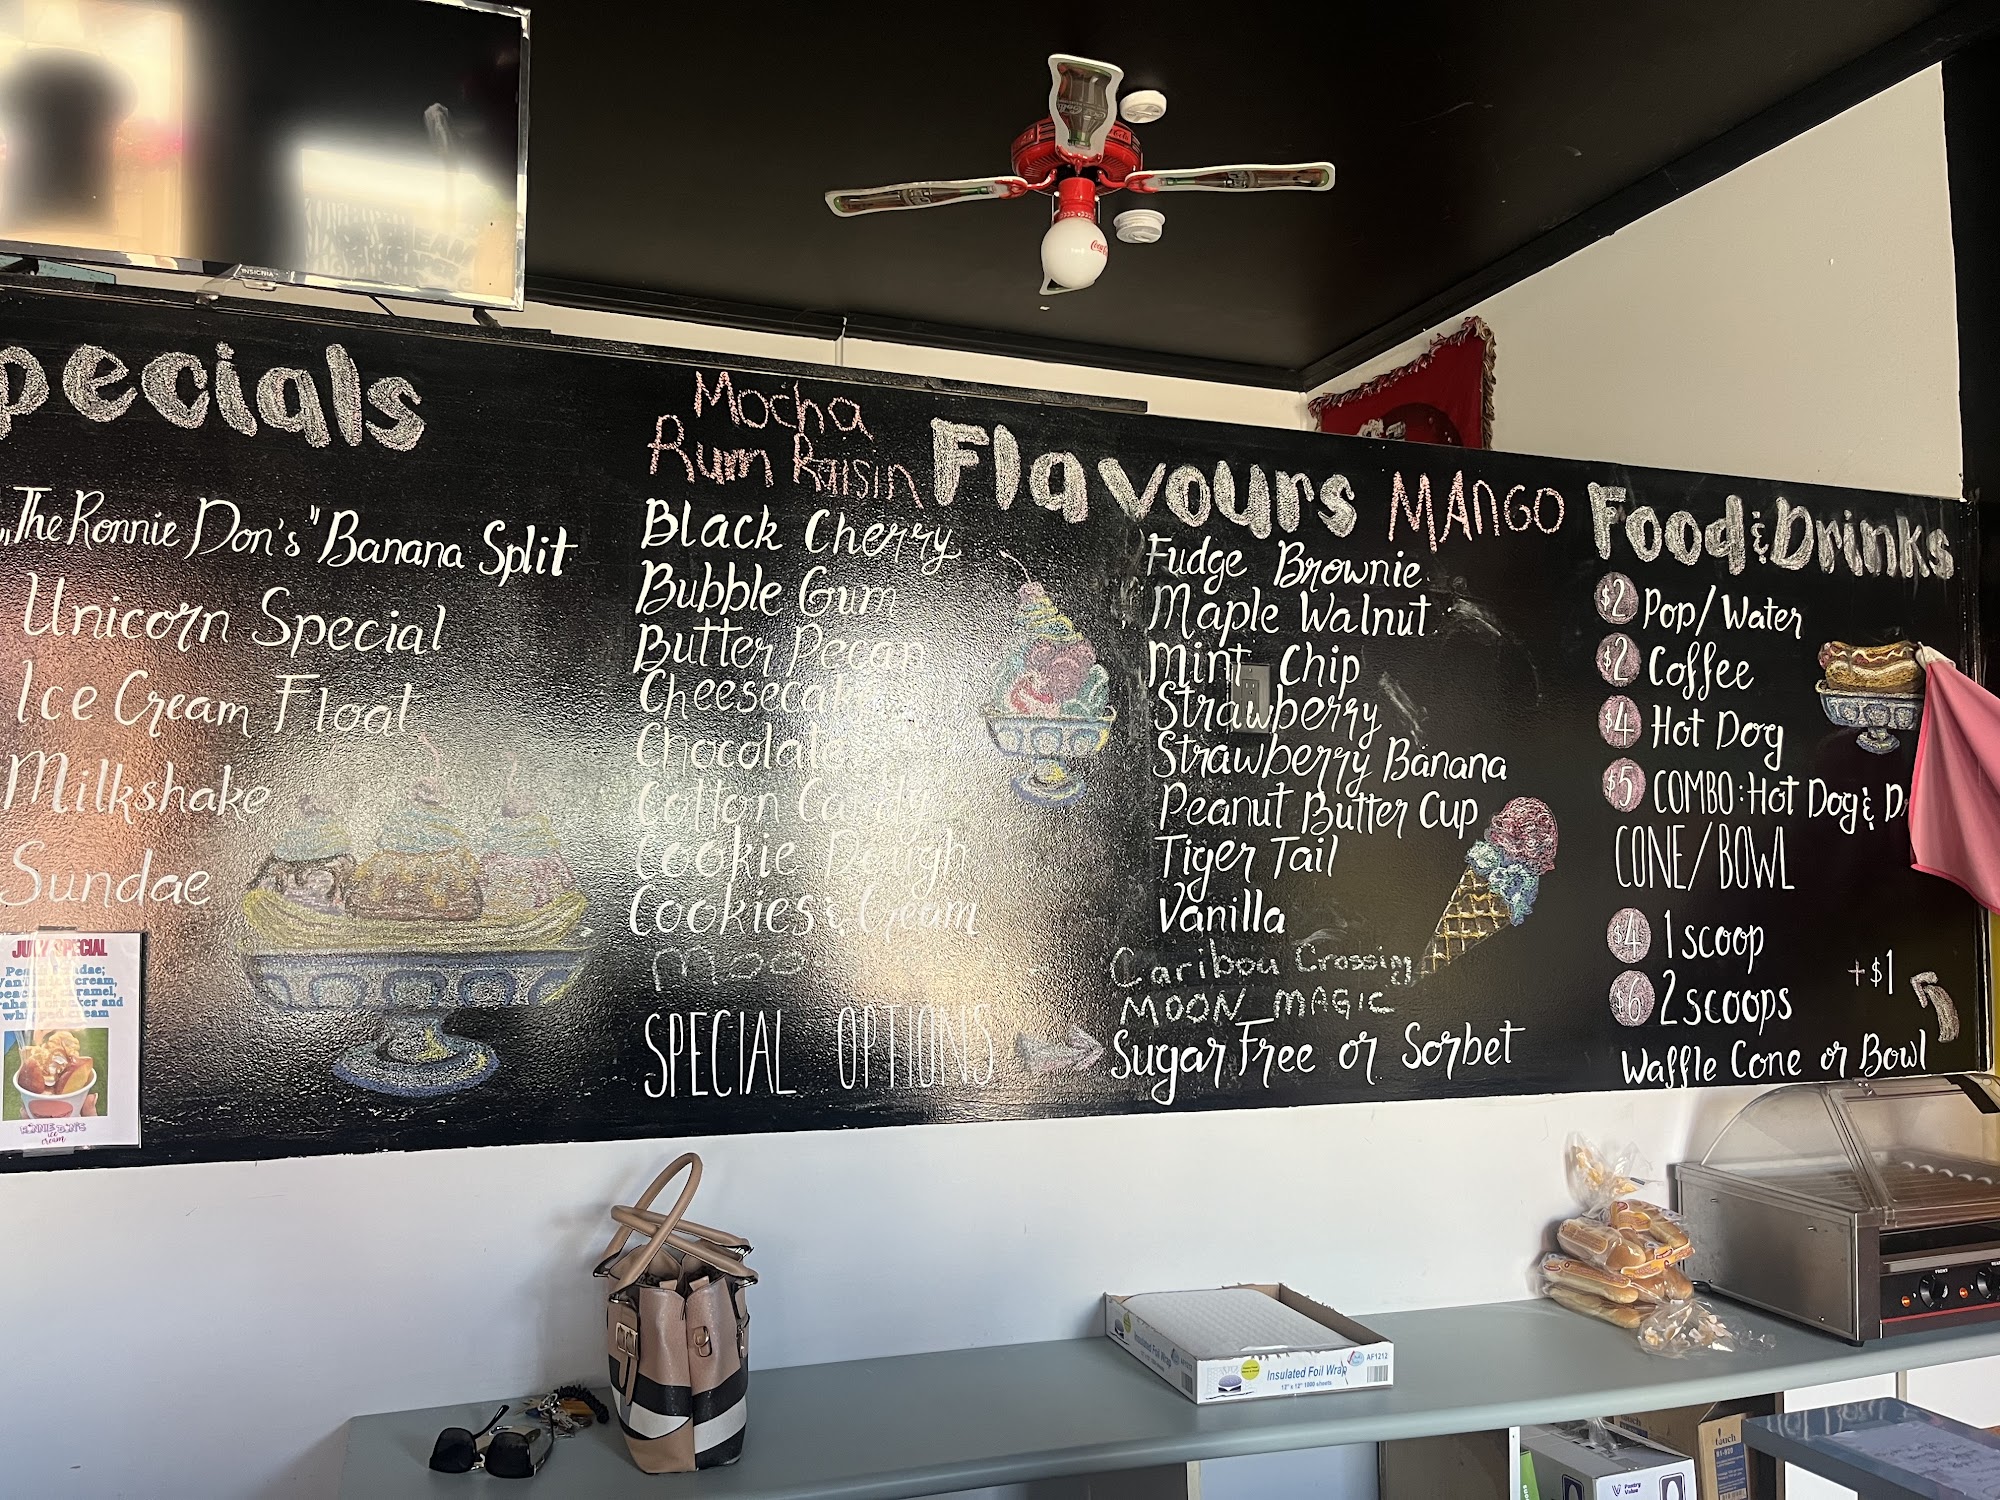 INSIGNIA
pecials
"The Ronnie Don's" Banana Split
Unicorn Special
Ice Cream Float
Milkshake
Sundae
JULY SPECIAL
whipped cream
Mocha
Rum Raisin
Flavours
MANGO
Black Cherry
Bubble Gum
Butter Pecan
Cheesecake
Chocolate
Cotton Candy
Cookie Dough
Cookies & Cream
SPECIAL OPTIONS
Fudge Brownie
Maple Walnut
Mint Chip
Strawberry
Strawberry Banana
Peanut Butter Cup
Tiger Tail
Vanilla
Caribou Crossing
MOON MAGIC
Sugar Free or Sorbet
Food & Drinks
$2 Pop/Water
$2 Coffee
$4 Hot Dog
$5 COMBO: Hot Dog & Dr
CONE/BOWL
$4 1 scoop
$6 2 scoops
+$1
Waffle Cone or Bowl
Insulated Foil Wrap
12" x 12" 1000 sheets
AF1212
touch
Pantry
Value